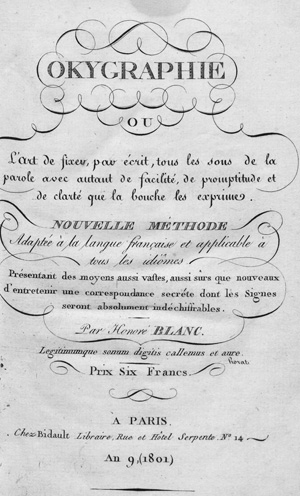 OKYGRAPHIE
OU
L'Art de fixer, par écrit, tous les sons de la
parole avec autant de facilité, de promptitude et
de clarté que la bouche les exprime.
NOUVELLE MÉTHODE
Adaptée à la langue française et applicable à
tous les idiômes
Présentant des moyens aussi vastes, aussi sûrs que nouveaux
d'entretenir une correspondance secrète dont les Signes
seront absolument indéchiffrables.
Par Honoré BLANC.
Legitimumque sonum digitis callemus et aure.
horat
Prix Six Francs.
A PARIS.
Chez Bidault Libraire, Rue et Hôtel Serpente, N.º 14
An 9, (1801)